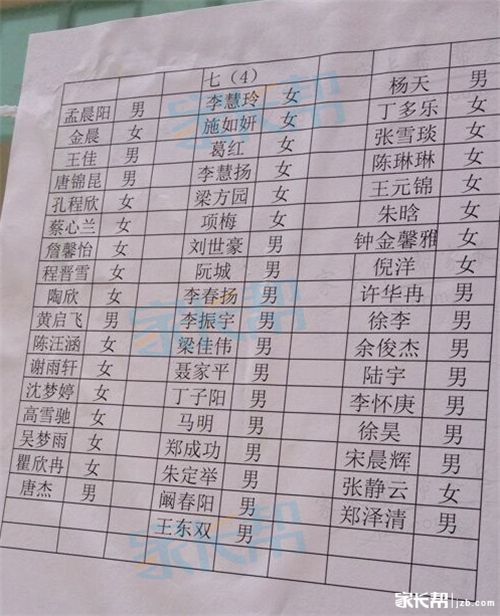 七（4）
孟晨阳 男 李慧玲 女 杨天 男
金晨 女 施如妍 女 丁多乐 女
王佳 男 葛红 女 张雪琰 女
唐锦昆 男 李慧扬 女 陈琳琳 女
孔程欣 女 梁方园 女 王元锦 女
蔡心兰 女 项梅 女 朱晗 女
詹馨怡 女 刘世豪 男 钟金馨雅 女
程晋雪 女 阮城 男 倪洋 女
陶欣 女 李春扬 男 许华冉 男
黄启飞 男 李振宇 男 徐李 男
陈汪涵 女 梁佳伟 男 余俊杰 男
谢雨轩 女 聂家平 男 陆宇 男
沈梦婷 女 丁子阳 男 李怀庚 男
高雪驰 女 马明 男 徐昊 男
吴梦雨 女 郑成功 男 宋晨辉 男
瞿欣冉 女 朱定举 男 张静云 女
唐杰 男 阚春阳 男 郑泽清 男
王东双 男
家长帮 jzb.com